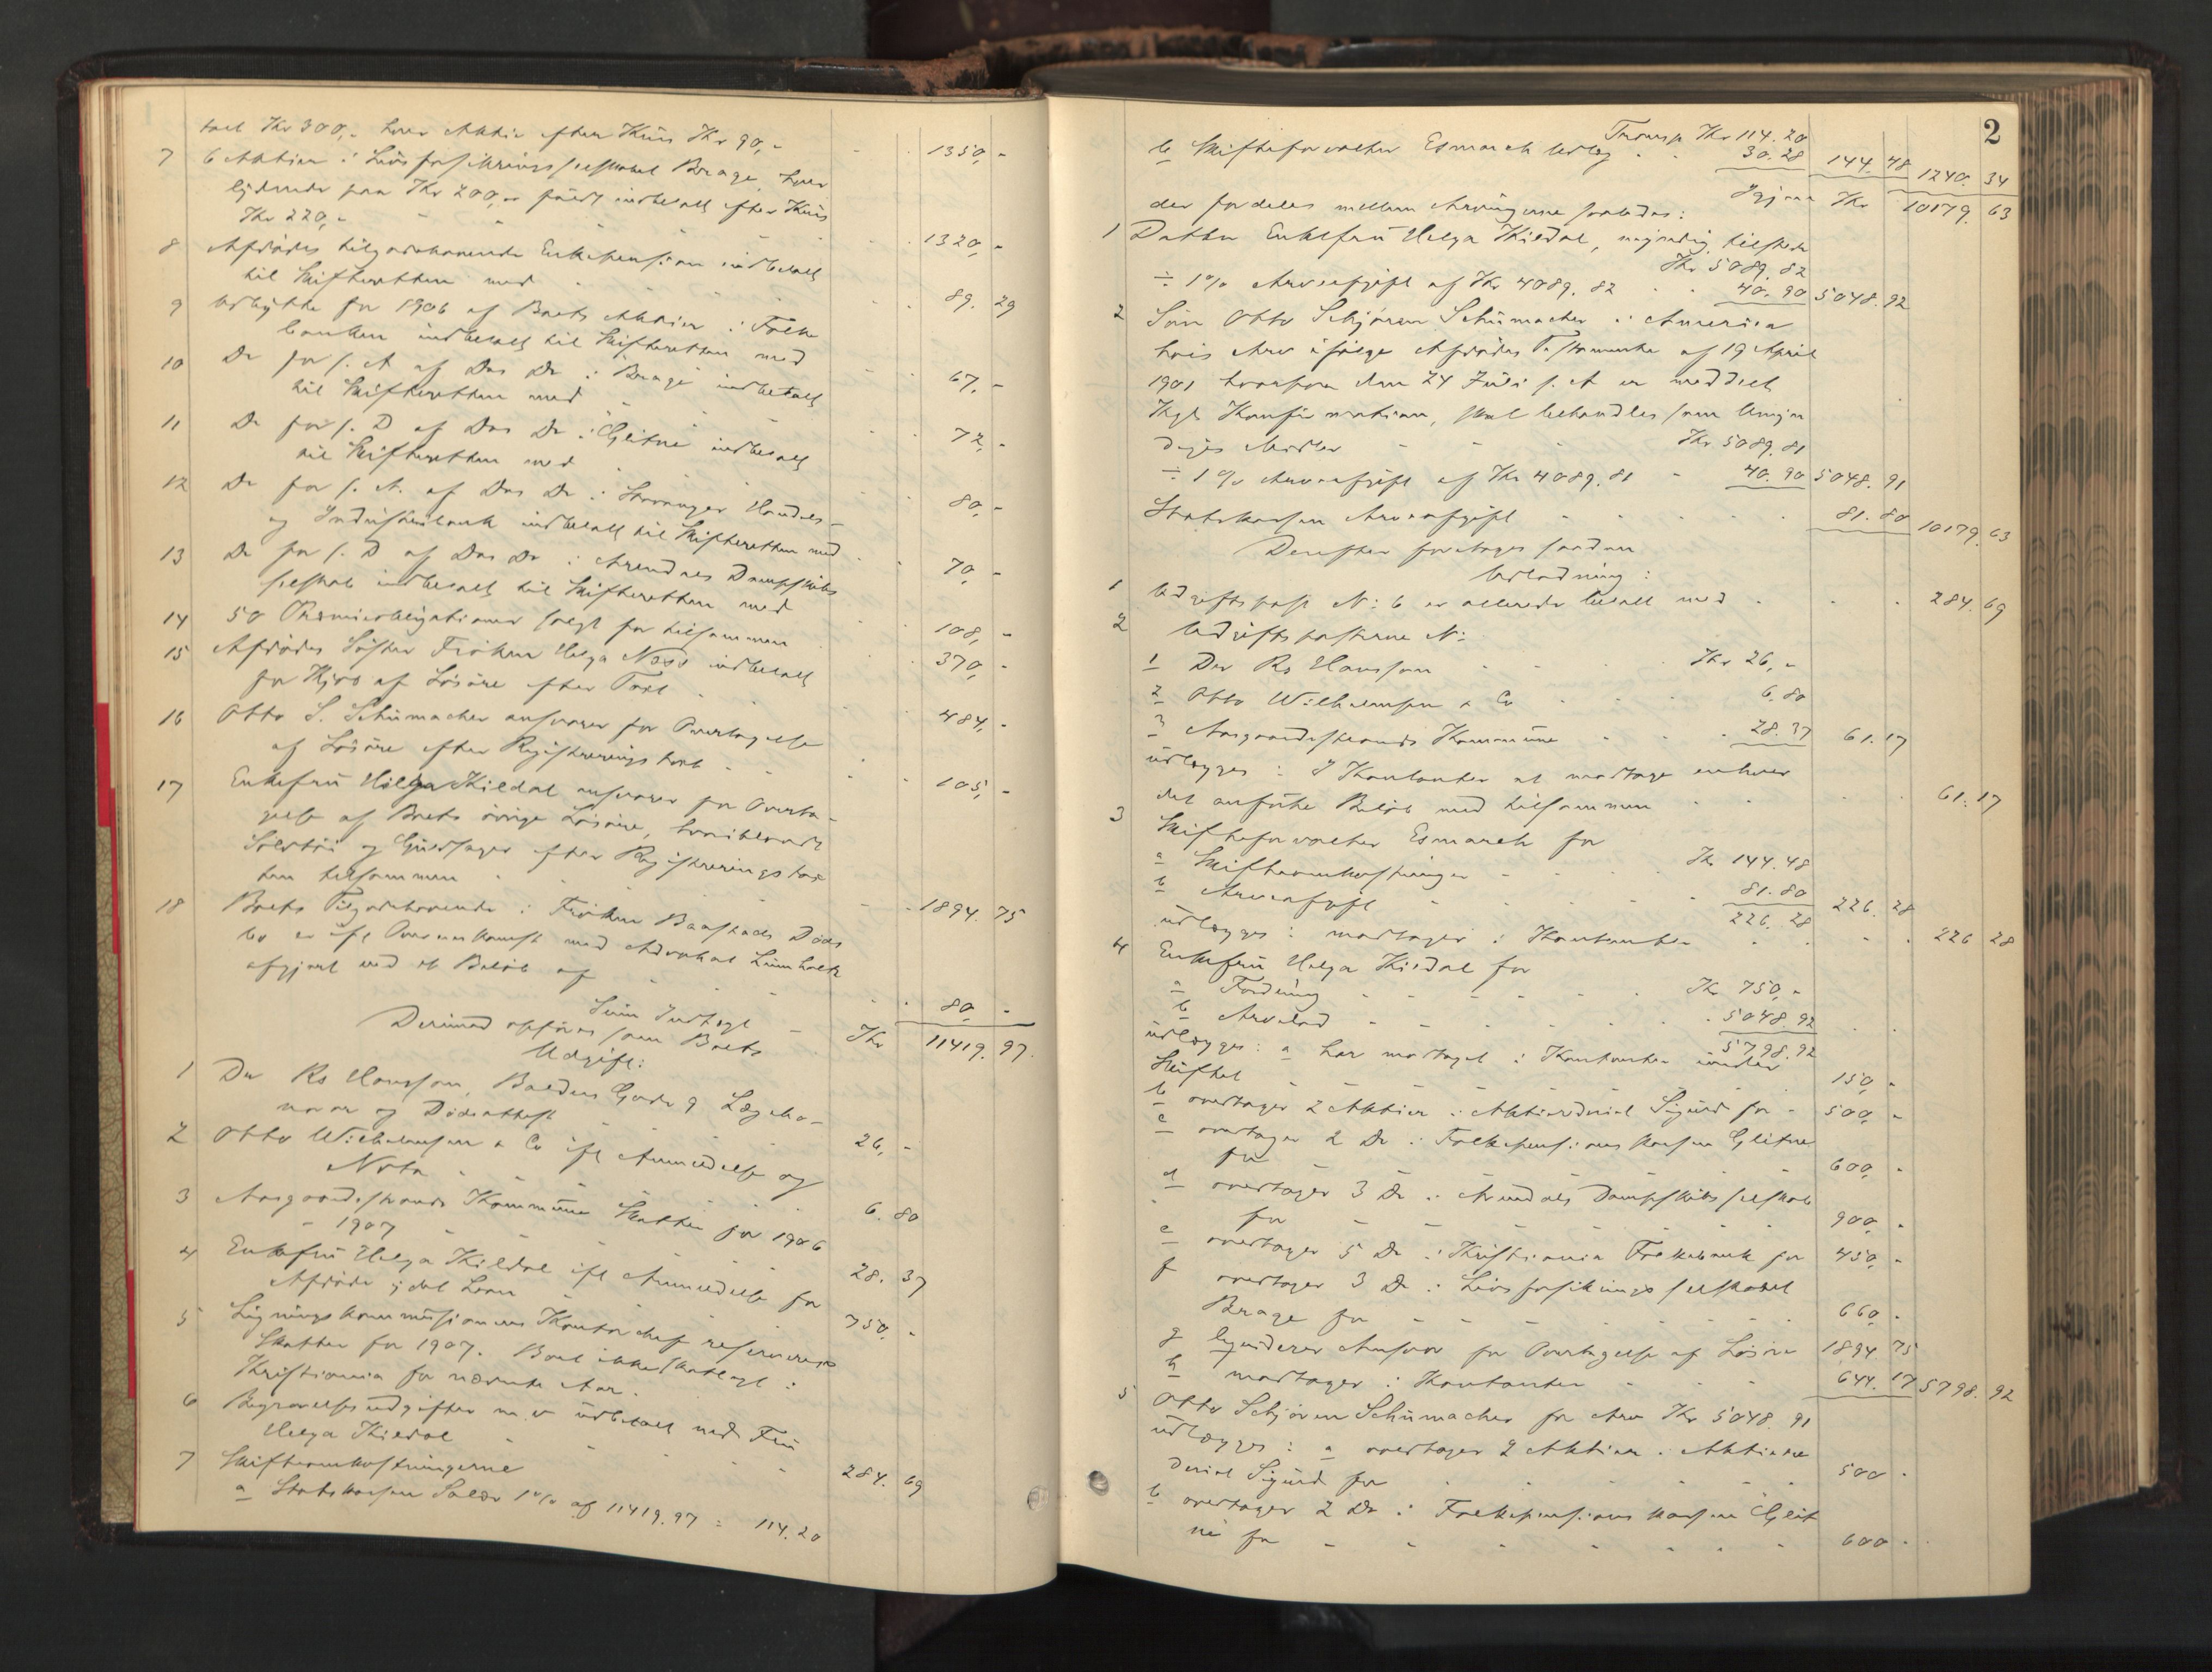 talt Kr 300,- hver Aktie efter Kurs Kr 90,- 1350,-
7 6 Aktier i Livsforsikringsselskabet Brage, hver
lydende paa Kr 200,- indbetalt efter Kurs
Kr 220,- 1320,-
8 Afdødes tilgodehavende Enkepension indbetalt
til Skifteretten med 89. 29
9 Udbytte for 1906 af Boets Aktier i Folke
banken indbetalt til Skifteretten med 67,-
10 Do for s. A af Dos Do i Brage indbetalt
til Skifteretten med 72,-
11 Do for s. D af Dos Do i Glitne indbetalt
til Skifteretten med 80,-
12 Do for s. A. af Dos Do i Stavanger Handels-
og Industribank indbetalt til Skifteretten med 70,-
13 Do for s. D af Dos Do i Arendals Dampskibs
selskab indbetalt til Skifteretten med 108,-
14 50 Præmieobligationer solgt for tilsammen 370,-
15 Afdødes Søster Frøken Helga Ness indbetalt
for Kjøb af Løsøre efter Taxt 484,-
16 Otto S. Schumacher ansvarer for Overtagelse
af Løsøre efter Registreringstaxt 105,-
17 Enkefru Helga Kildal ansvarer for Overta-
gelse af Boets øvrige Løsøre, hvoriblandt
Sølvtøi og Guldsager efter Registreringstax
ten tilsammen 1894. 75
18 Boets Tilgodehavende i Frøken Baastads Døds
bo er ifl Overenskomst med Advokat Lumholtz
afgjort ved et Beløb af 80,-
Sum Indtægt Kr 11419. 97.
Derimod opføres som Boets
Udgift:
1 Dr Rs Hansson, Baldersgade 9 Lægeho-
norar og Dødsattest 26,-
2 Otto Wilhelmsen & Co ifl Anmeldelse og
Nota 6. 80
3 Aasgaardstrands Kommune Skatter for 1906
- 1907 28. 37
4 Enkefru Helga Kildal ifl Anmeldelse for
Afdøde ydet Laan 750,-
5 Ligningskommissionens Kontorchef reserverer
Skatter for 1907. Boet ikke skatlagt i
Kristiania for nævnte Aar.
6 Begravelsesudgifter m. v udbetalt ved Fru
Helga Kildal 284. 69
7 Skifteomkostningerne
a Statskassen Salær 1% af 11419.97 = 114.20
2
Transp Kr 114.20
b Skifteforvalter Esmarch Udlæg 30.28 144. 48 1240. 34
Igjen Kr 10179. 63
der fordeles mellem Arvingerne saaledes:
1 Datter Enkefru Helga Kildal, myndig, tilstede
Kr 5089. 82
÷ 1% Arveafgift af Kr 4089. 82 40. 90 5048. 92
2 Søn Otto Schjøren Schumacher i Amerika
hvis Arv ifølge Afdødes Testamente af 19 April
1901 hvorpaa den 24 Juli s. A er meddelt
Kgl Konfirmation, skal behandles som Umyn
diges Midler Kr 5089. 81
÷ 1% Arveafgift af Kr 4089. 81 40. 90 5048. 91
Statskassen Arveafgift 81. 80 10179. 63
Derefter foretages saadan
Udlodning:
1 Udgiftspost No 6 er allerede betalt med 284. 69
2 Udgiftsposterne No
1 Dr Rs Hansson Kr 26,-
2 Otto Wilhelmsen & Co 6. 80
3 Aasgaardstrands Kommune 28. 37 61. 17
udlægges: I Kontanter at modtage enhver
det anførte Beløb med tilsammen 61. 17
3 Skifteforvalter Esmarch for
a Skifteomkostninger Kr 144. 48
b Arveafgift 81. 80 226. 28
226. 28
udlægges: modtager i Kontanter 226 28
4 Enkefru Helga Kildal for
a Fordring Kr 750,-
b Arvelod 5048. 92
5798. 92
udlægges: a har modtaget i Kontanter under
Skiftet 150,-
b overtager 2 Aktier i Sigurd for 500,-
c overtager 2 Do i Folkepensionskassen Glitne
for 600,-
d overtager 3 Do i Arendals Dampskibsselskab
for 900,-
e overtager 5 Do i Kristiania Folkebank for 450,-
f overtager 3 Do i Livsforsikringsselskabet
Brage for 660,-
g Ansvar for Overtagelse af Løsøre 1894. 75
h modtager i Kontanter 644. 17 5798. 92
5 Otto Schjøren Schumacher for Arv Kr 5048. 91
udlægges: a overtager 2 Aktier i
Sigurd for 500 -
b overtager 2 Do i Folkepensionskassen Glit
ne for 600 -